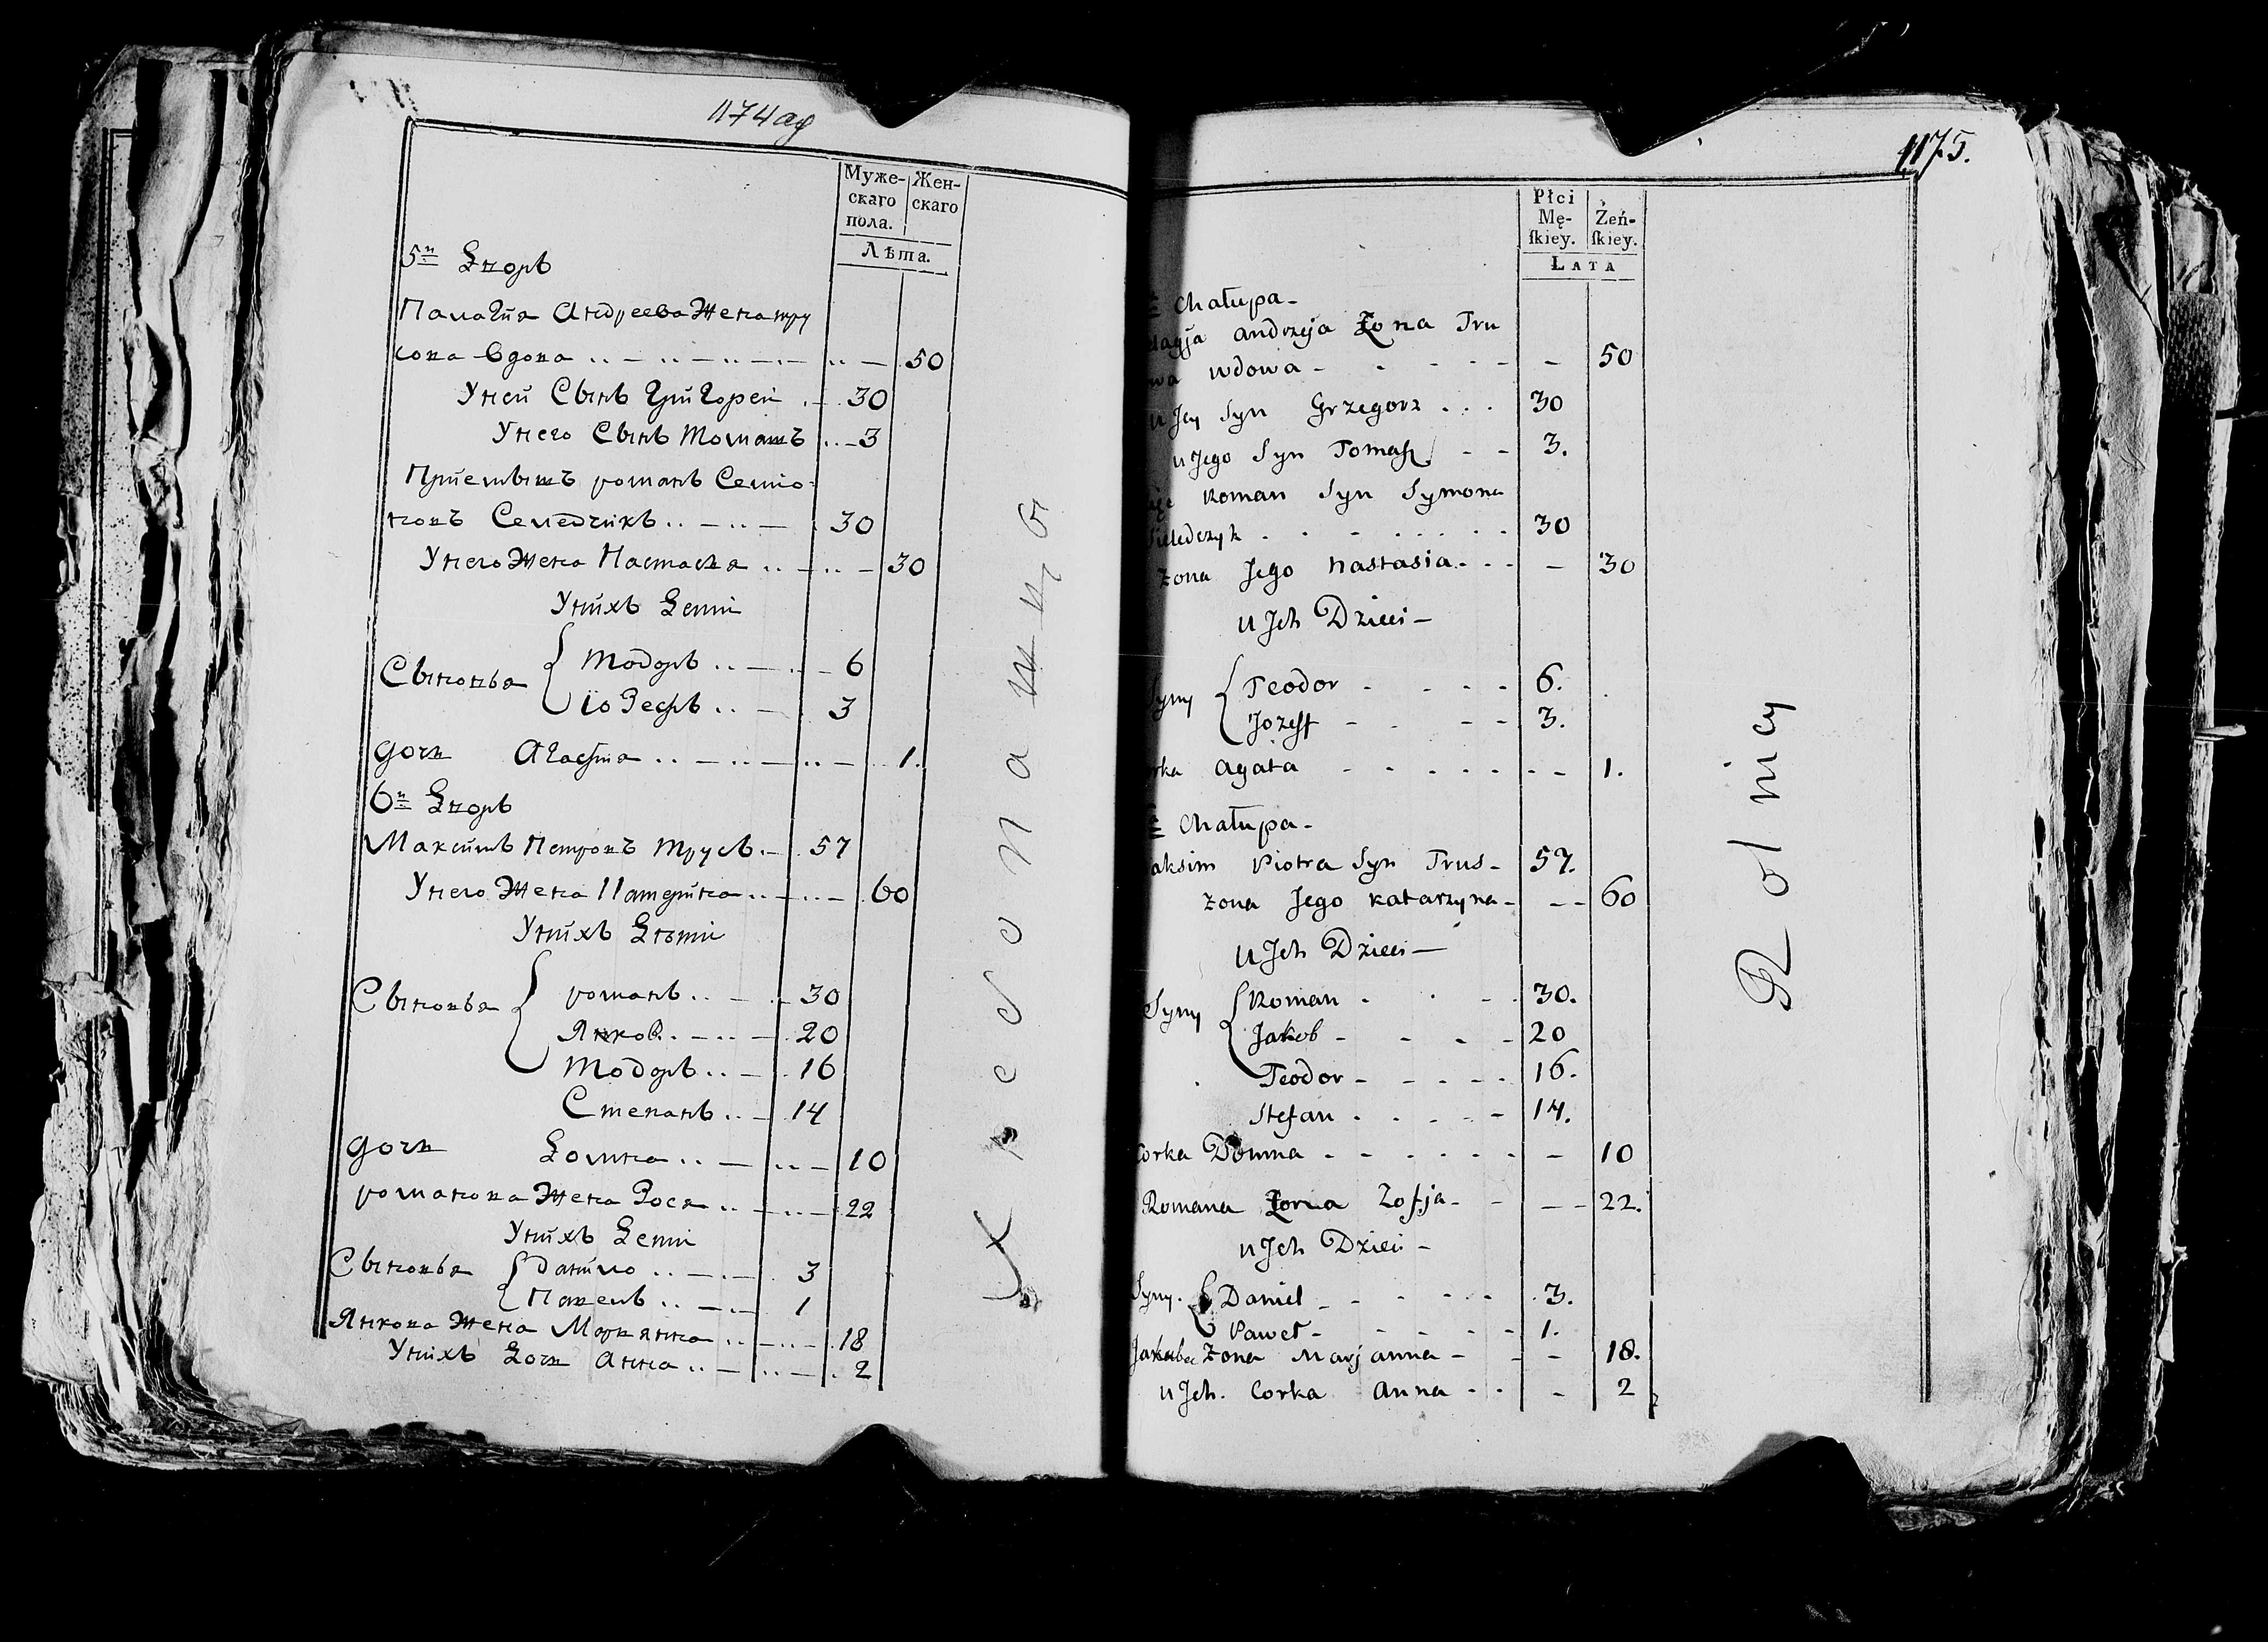 1174
Муже-
скаго
пола.
Жен-
скаго
Лѣта.
5й Дворъ
Палагия Андреева Жена тру
сова вдова 50
Унеи Сынъ Григореи 30
Унего Сынъ Томашъ 3
Приемышъ романъ Семіо-
новъ Селедчикъ 30
Унего Жена Настасия 30
Унихъ Дети
Сыновья { Тодоръ 6
іозефъ 3
дочь Агафия 1.
6й Дворъ
Максимъ Петровъ Трусъ 57
Унего Жена Катерина 60
Унихъ Дѣти
Сыновья { романъ 30
Янков 20
Тодоръ 16
Степанъ 14
дочь Домна 10
романова Жена Зося 22
Унихъ Дети
Сыновья { данило 3
Павелъ 1
Янкова Жена Марьянна 18
Унихъ Дочь Анна 2
Хрестяне
1175.
Płci
Mę-
ſkiey.
Żeń-
ſkiey.
LATA
Chałupa
andrzeja Żona Tru
wdowa - 50
u Jey Syn Grzegorz 30
u Jego Syn Tomasz 3.
Roman Syn Symona
30
żona Jego nastasia - 30
u Jch Dzieci -
Syny { Teodor 6.
Jozeff 3.
agata 1.
Chałupa -
Piotra Syn Trus - 57.
żona Jego katarzyna - 60
u Jch Dzieci -
Syny { Roman 30.
Jakob 20
Teodor 16.
Stefan 14.
Corka Domna 10
Romana Żona Zofja - 22.
u Jch Dzieci -
Syny. { Daniel 3.
Paweł 1.
Jakuba żona Marjanna 18.
u Jch. Corka anna 2
Rolnicy